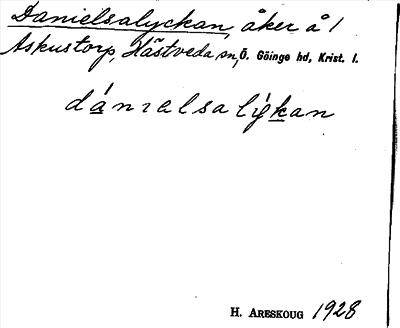 Danielsalyckan, åker å 1
Askustorp, Hästveda sn, Ö. Göinge hd, Krist. l.
dánıelsalýkan
H. ARESKOUG 1928